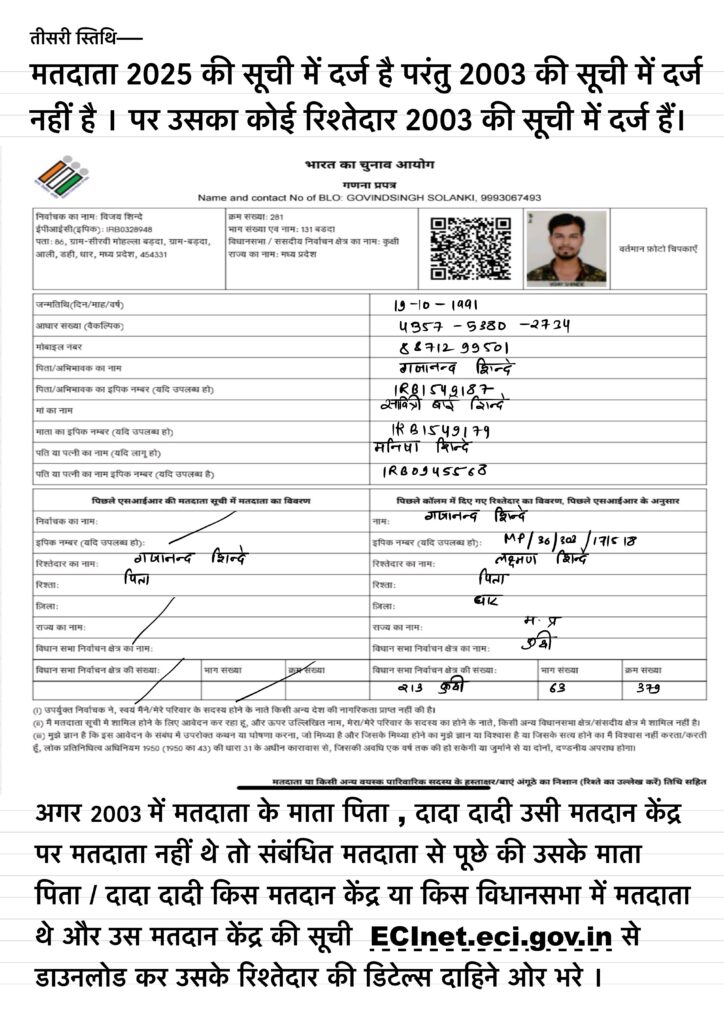 तीसरी स्तिथि—
मतदाता 2025 की सूची में दर्ज है परंतु 2003 की सूची में दर्ज
नहीं है । पर उसका कोई रिश्तेदार 2003 की सूची में दर्ज हैं।
भारत का चुनाव आयोग
गणना प्रपत्र
Name and contact No of BLO: GOVINDSINGH SOLANKI, 9993067493
निर्वाचक का नाम: विजय शिन्दे
ईपीआईसी(इपिक): IRB0328948
पता: 86, ग्राम-सीरवी मोहल्ला बड़दा, ग्राम-बड़दा,
आली, डही, धार, मध्य प्रदेश, 454331
क्रम संख्या: 281
भाग संख्या एवं नाम: 131 बडदा
विधानसभा / संसदीय निर्वाचन क्षेत्र का नाम: कुक्षी
राज्य का नाम: मध्य प्रदेश
VIJAY SHINDE
वर्तमान फ़ोटो चिपकाएँ
जन्मतिथि(दिन/माह/वर्ष) 19-10-1991
आधार संख्या (वैकल्पिक) 4957-5380-2734
मोबाइल नंबर 88712 99501
पिता/अभिभावक का नाम गजानन्द शिन्दे
पिता/अभिभावक का इपिक नम्बर (यदि उपलब्ध हो) IRB1549187
मां का नाम सावित्री बाई शिन्दे
माता का इपिक नम्बर (यदि उपलब्ध हो) IRB1549179
पति या पत्नी का नाम (यदि लागू हो) मनिषा शिन्दे
पति या पत्नी का नाम इपिक नम्बर (यदि उपलब्ध है) IRB0945568
पिछले एसआईआर की मतदाता सूची में मतदाता का विवरण
निर्वाचक का नाम:
इपिक नम्बर (यदि उपलब्ध हो):
रिश्तेदार का नाम: गजानन्द शिन्दे
रिश्ता: पिता
ज़िला:
राज्य का नाम:
विधान सभा निर्वाचन क्षेत्र का नाम:
विधान सभा निर्वाचन क्षेत्र की संख्या: भाग संख्या क्रम संख्या
पिछले कॉलम में दिए गए रिश्तेदार का विवरण, पिछले एसआईआर के अनुसार
नाम: गजानन्द शिन्दे
इपिक नम्बर (यदि उपलब्ध हो): MP/30/302/171518
रिश्तेदार का नाम: लक्ष्मण शिन्दे
रिश्ता: पिता
ज़िला: धार
राज्य का नाम: म.प्र
विधान सभा निर्वाचन क्षेत्र का नाम: कुक्षी
विधान सभा निर्वाचन क्षेत्र की संख्या: भाग संख्या क्रम संख्या
213 कुक्षी 63 379
(i) उपर्युक्त निर्वाचक ने, स्वयं मैंने/मेरे परिवार के सदस्य होने के नाते किसी अन्य देश की नागरिकता प्राप्त नहीं की है।
(ii) मैं मतदाता सूची में शामिल होने के लिए आवेदन कर रहा हूं, और ऊपर उल्लिखित नाम, मेरा/मेरे परिवार के सदस्य का होने के नाते, किसी अन्य विधानसभा क्षेत्र/संसदीय क्षेत्र में शामिल नहीं है।
(iii) मुझे ज्ञान है कि इस आवेदन के संबंध में उपरोक्त कथन या घोषणा करना, जो मिथ्या है और जिसके मिथ्या होने का मुझे ज्ञान या विश्वास है या जिसके सत्य होने का मैं विश्वास नहीं करता/करती
हूँ, लोक प्रतिनिधित्व अधिनियम 1950 (1950 का 43) की धारा 31 के अधीन कारावास से, जिसकी अवधि एक वर्ष तक की हो सकेगी या जुर्माने से या दोनों, दण्डनीय अपराध होगा।
मतदाता या किसी अन्य वयस्क पारिवारिक सदस्य के हस्ताक्षर/बाएं अंगूठे का निशान (रिश्ते का उल्लेख करें) तिथि सहित
अगर 2003 में मतदाता के माता पिता , दादा दादी उसी मतदान केंद्र
पर मतदाता नहीं थे तो संबंधित मतदाता से पूछे की उसके माता
पिता / दादा दादी किस मतदान केंद्र या किस विधानसभा में मतदाता
थे और उस मतदान केंद्र की सूची ECInet.eci.gov.in से
डाउनलोड कर उसके रिश्तेदार की डिटेल्स दाहिने ओर भरे ।